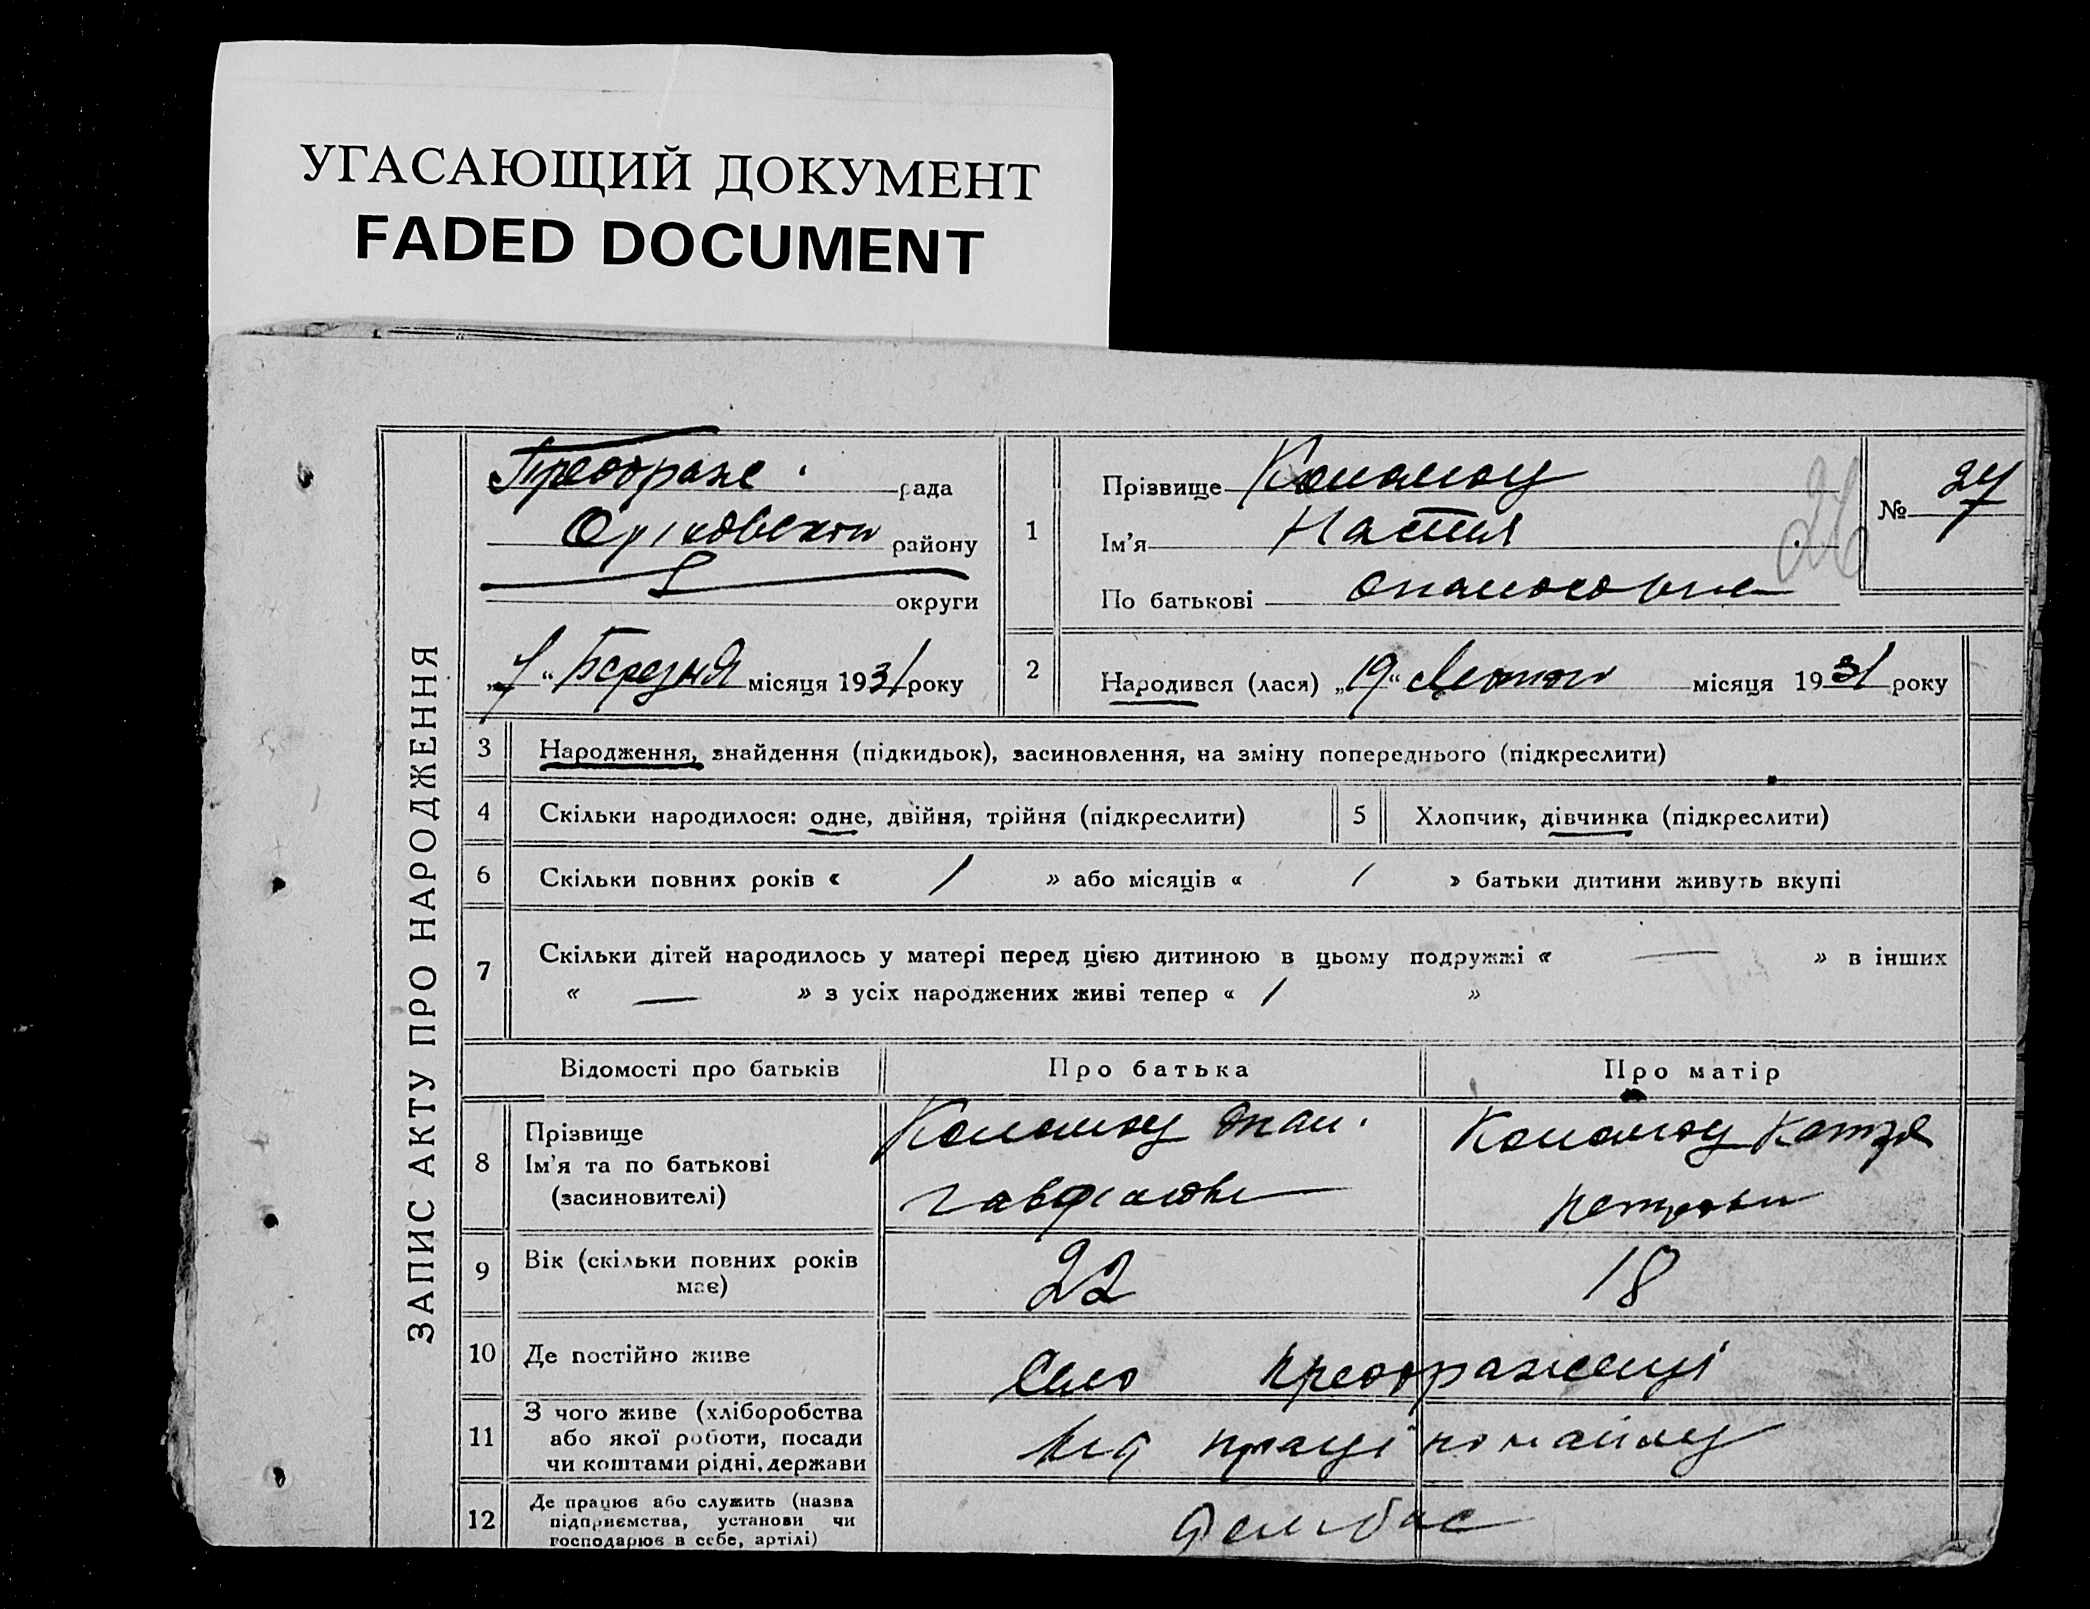 УГАСАЮЩИЙ ДОКУМЕНТ
FADED DOCUMENT
ЗАПИС АКТУ ПРО НАРОДЖЕННЯ
Преображ. рада
району
округи
„7“ Березня місяця 1931 року
1
Прізвище
Ім'я Настя
По батькові
№ 27
26
2
Народився (лася) „19“ Лютого місяця 1931 року
3 Народження, знайдення (підкидьок), засиновлення, на зміну попереднього (підкреслити)
4 Скільки народилося: одне, двійня, трійня (підкреслити)
5 Хлопчик, дівчинка (підкреслити)
6 Скільки повних років « / » або місяців « / » батьки дитини живуть вкупі
7 Скільки дітей народилось у матері перед цією дитиною в цьому подружжі « — » в інших
« — » з усіх народжених живі тепер « / »
Відомості про батьків Про батька Про матір
8 Прізвище
Ім'я та по батькові
(засиновителі)
Катря
Петровн
9 Вік (скільки повних років має) 22 18
10 Де постійно живе Село Преображенці
11 З чого живе (хліборобства
або якої роботи, посади
чи коштами рідні, держави
12 Де працює або служить (назва
підприємства, установи чи
господарює в себе, артілі)